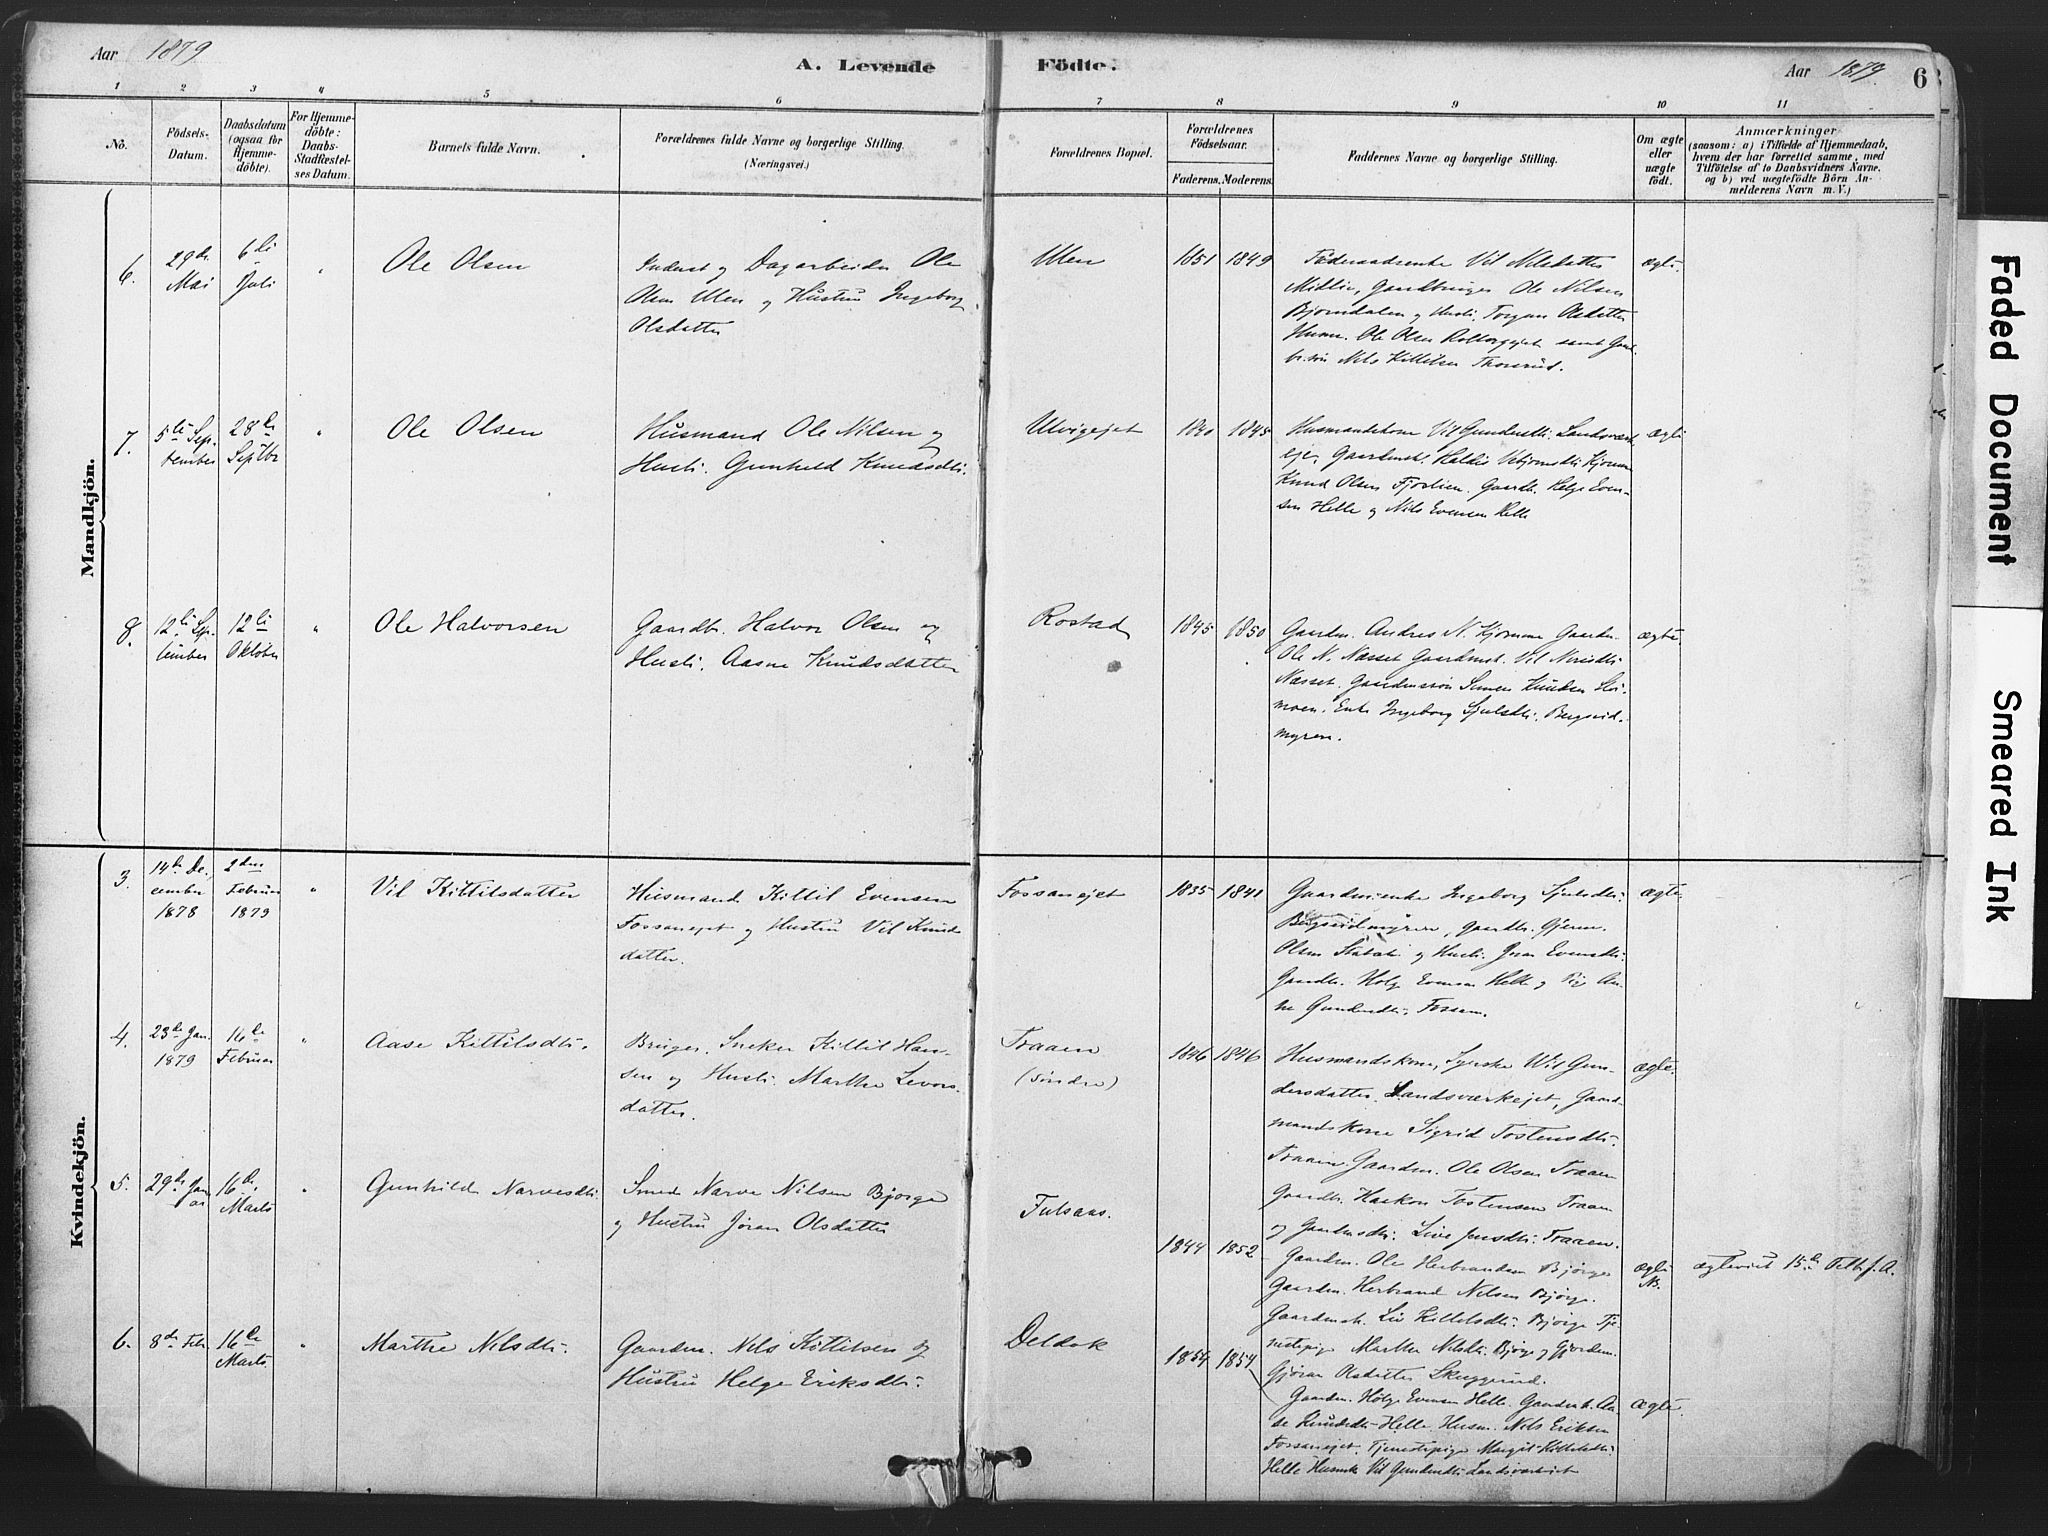 Aar 1879
A. Levende Födte.
Aar 1879.
6
1 2 3 4 5 6 7 8 9 10 11
No.
Födsels-
Datum.
Daabsdatum
(ogsaa for
Hjemme-
döbte).
For Hjemme-
döbte:
Daabs-
Stadfæstel-
ses Datum.
Barnets fulde Navn.
Forældrenes fulde Navne og borgerlige Stilling.
(Næringsvei.)
Forældrenes Bopæl.
Forældrenes
Födselsaar.
Faderens. Moderens.
Faddernes Navne og borgerlige Stilling.
Om ægte
eller
uægte
födt.
Anmærkninger
(saasom: a) i Tilfælde af Hjemmedaab,
hvem der har forrettet samme, med
Tilföielse af to Daabsvidners Navne,
og b) ved uægtefödte Börn An-
melderens Navn m. V.)
Mandkjön.
6.
29de
Mai
6te
Juli
"
Ole Olsen
Inderst og Dagarbeider Ole
Olsen Ulen og Hustru Ingeborg
Olsdatter
Ulen
1851 1849
Föderaadsenke Vil Nilsdatter
Midlie, Gaardbruger Ole Nilsen
Bjørndalen og Hustr. Torgun Olsdatter
Husm. Ole Olsen samt Gaard-
br.søn Nels Kittilsen Thorsrud.
ægte.
7.
5te Sep-
tember
28de
Septbr
"
Ole Olsen
Husmand Ole Nilsen og
Hustr. Gunhild Knudsdtr.
Ulvigejet
1840 1845
Husmandskone Vil Gundersdtr. Landsværk-
eje, Gaardmd. Haldis Vebjørnsdtr. Kjomme
Knud Olsen Fjøslien. Gaardb. Helge Even-
sen Helle og Nils Evensen Helle
ægte
8.
12te Sep-
tember
12te
Oktober
"
Ole Halvorsen
Gaardbr. Halvor Olsen og
Hustr. Aasne Knudsdatter
Rostad
1845 1850
Gaardm. Andres N. Kjomme Gaardm.
Ole N. Næsset Gaardmd. Vil Nirisdtr
Næsset. Gaardmssøn Simen Knudsen Stor-
moen. Enke Ingeborg Sjulsdtr. Bergsvid-
myren.
ægte.
Kvindekjön.
3.
14de De-
cember
1878
2den
Februar
1879
"
Vil Kittilsdatter
Husmand Kittil Evensen
Fossanejet og Hustru Vil Knuds
datter.
Fossanejet
1835 1841
Gaardmienke Ingeborg Sjulsdtr.
Bergsvidmyren, Gaardbr. Gjeren.
Olsen og Hustr. Jøran Evensdtr.
Gaardbr. Helge Evensen Helle og Pige An-
ne Gundersdtr. Fossan.
ægte
4.
23de Jan.
1879
16de
Februar
"
Aase Kittilsdtr.
Bruger. Sneker Kittil Han-
sen og Hustr. Marthe Levors-
datter.
Traaen
(söndre)
1846 1846
Husmandskone, Synske Wil Gun-
dersdatter Landsværkejet, Gaard-
mandskone Sigrid Tostensdtr.
Traaen. Gaardm. Ole Olsen Traaen
Gaardbr. Haakon Tostensen Traaen
og Gaardmsdtr. Live Jensdtr. Traaen.
ægte.
5.
29de Janu-
ar
16de
Marts
"
Gunhild Narvesdtr.
Smed Narve Nilsen Bjørge
og Hustru Jøran Olsdatter
Fulsaas.
1844 1852
Gaardm. Ole Herbrandsen Bjørge
Gaardm. Herbrand Nilsen Bjørge.
Gaardmd. Liv Kittilsdtr. Bjørge Tje-
nestepige Marthe Nilsdtr. Bjørge og Gjordem.
Gjøran Olsdatter Skuggerud.
ægte
NB.
ægteviet 15de Febr. f. A.
6.
8de Febr
16de
Marts
"
Marthe Nilsdtr.
Gaardm. Nels Kittilsen og
Hustru Helge Eriksdtr.
Deldok
1854 1854
Gaardm. Helge Evensen Helle. Gaardmk. Aa-
se Knudsdtr Helle. Husm. Nels Eriksen
Fossanejet. Tjenestepige Margit Kittilsdtr.
Helle Husmk Vil Gundersdtr. Landsværkejet
ægte.
Faded Document
Smeared Ink